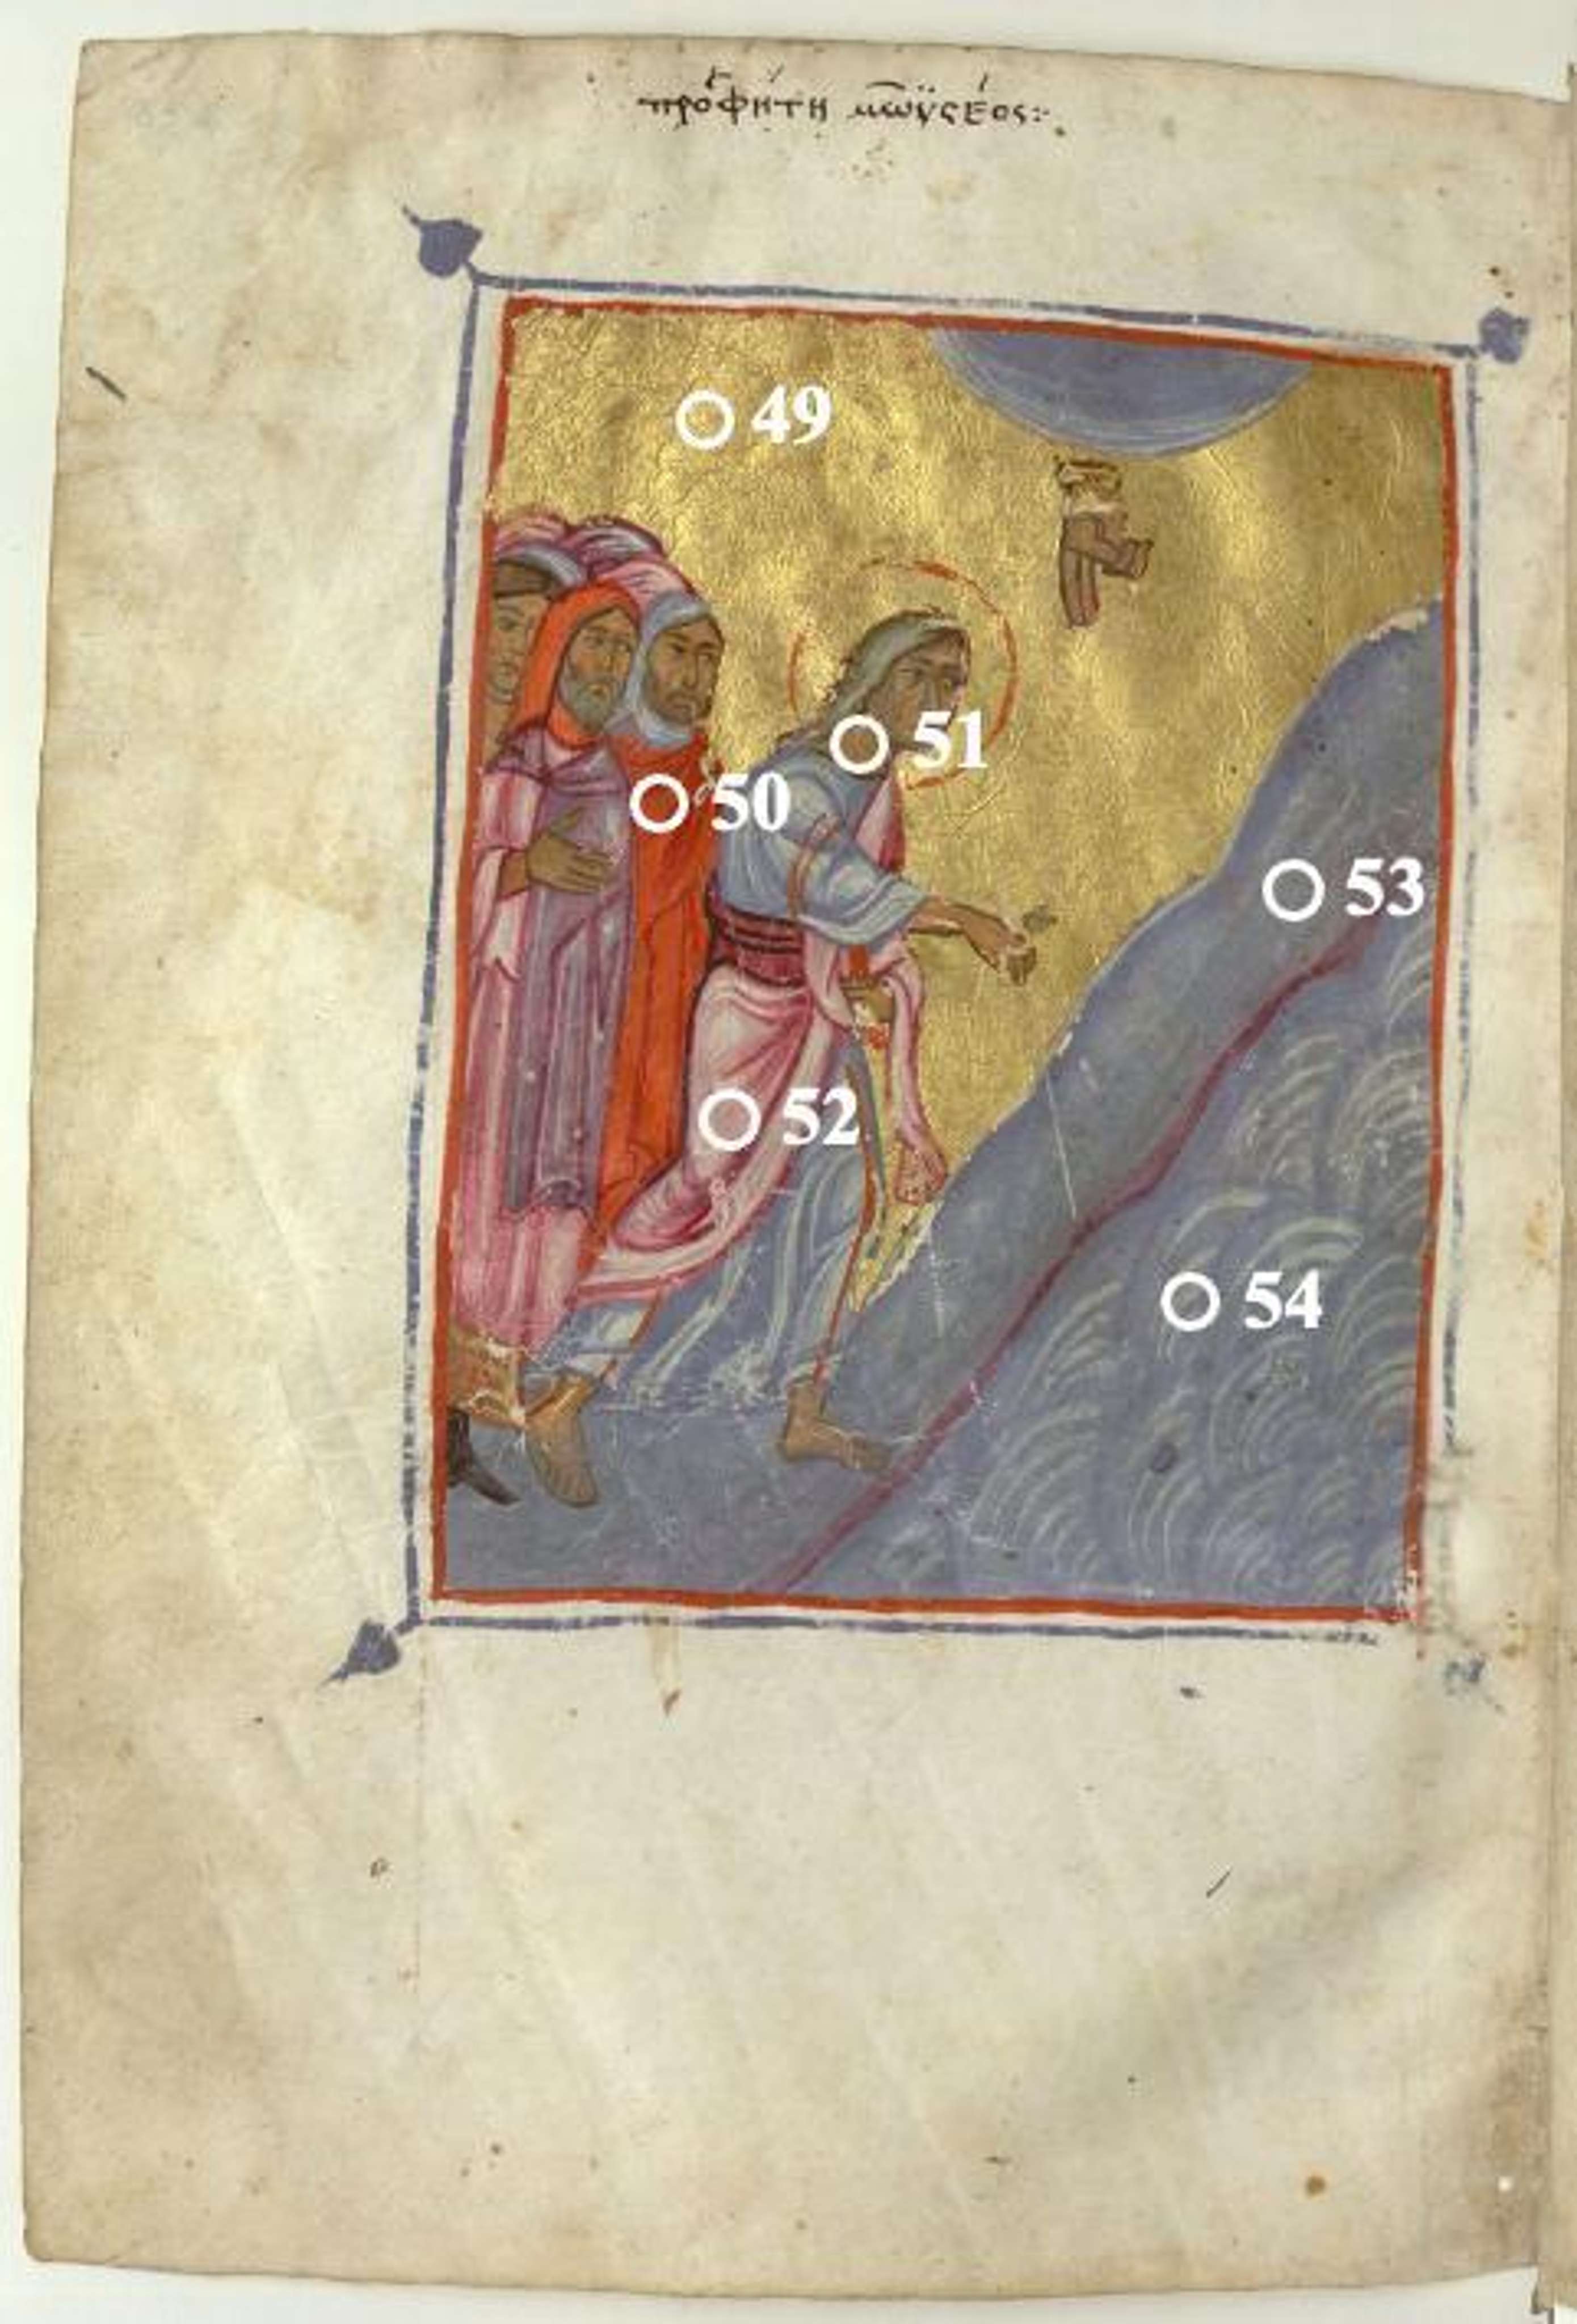 προφήτη μωϋσέος:
49
51
50
53
52
54